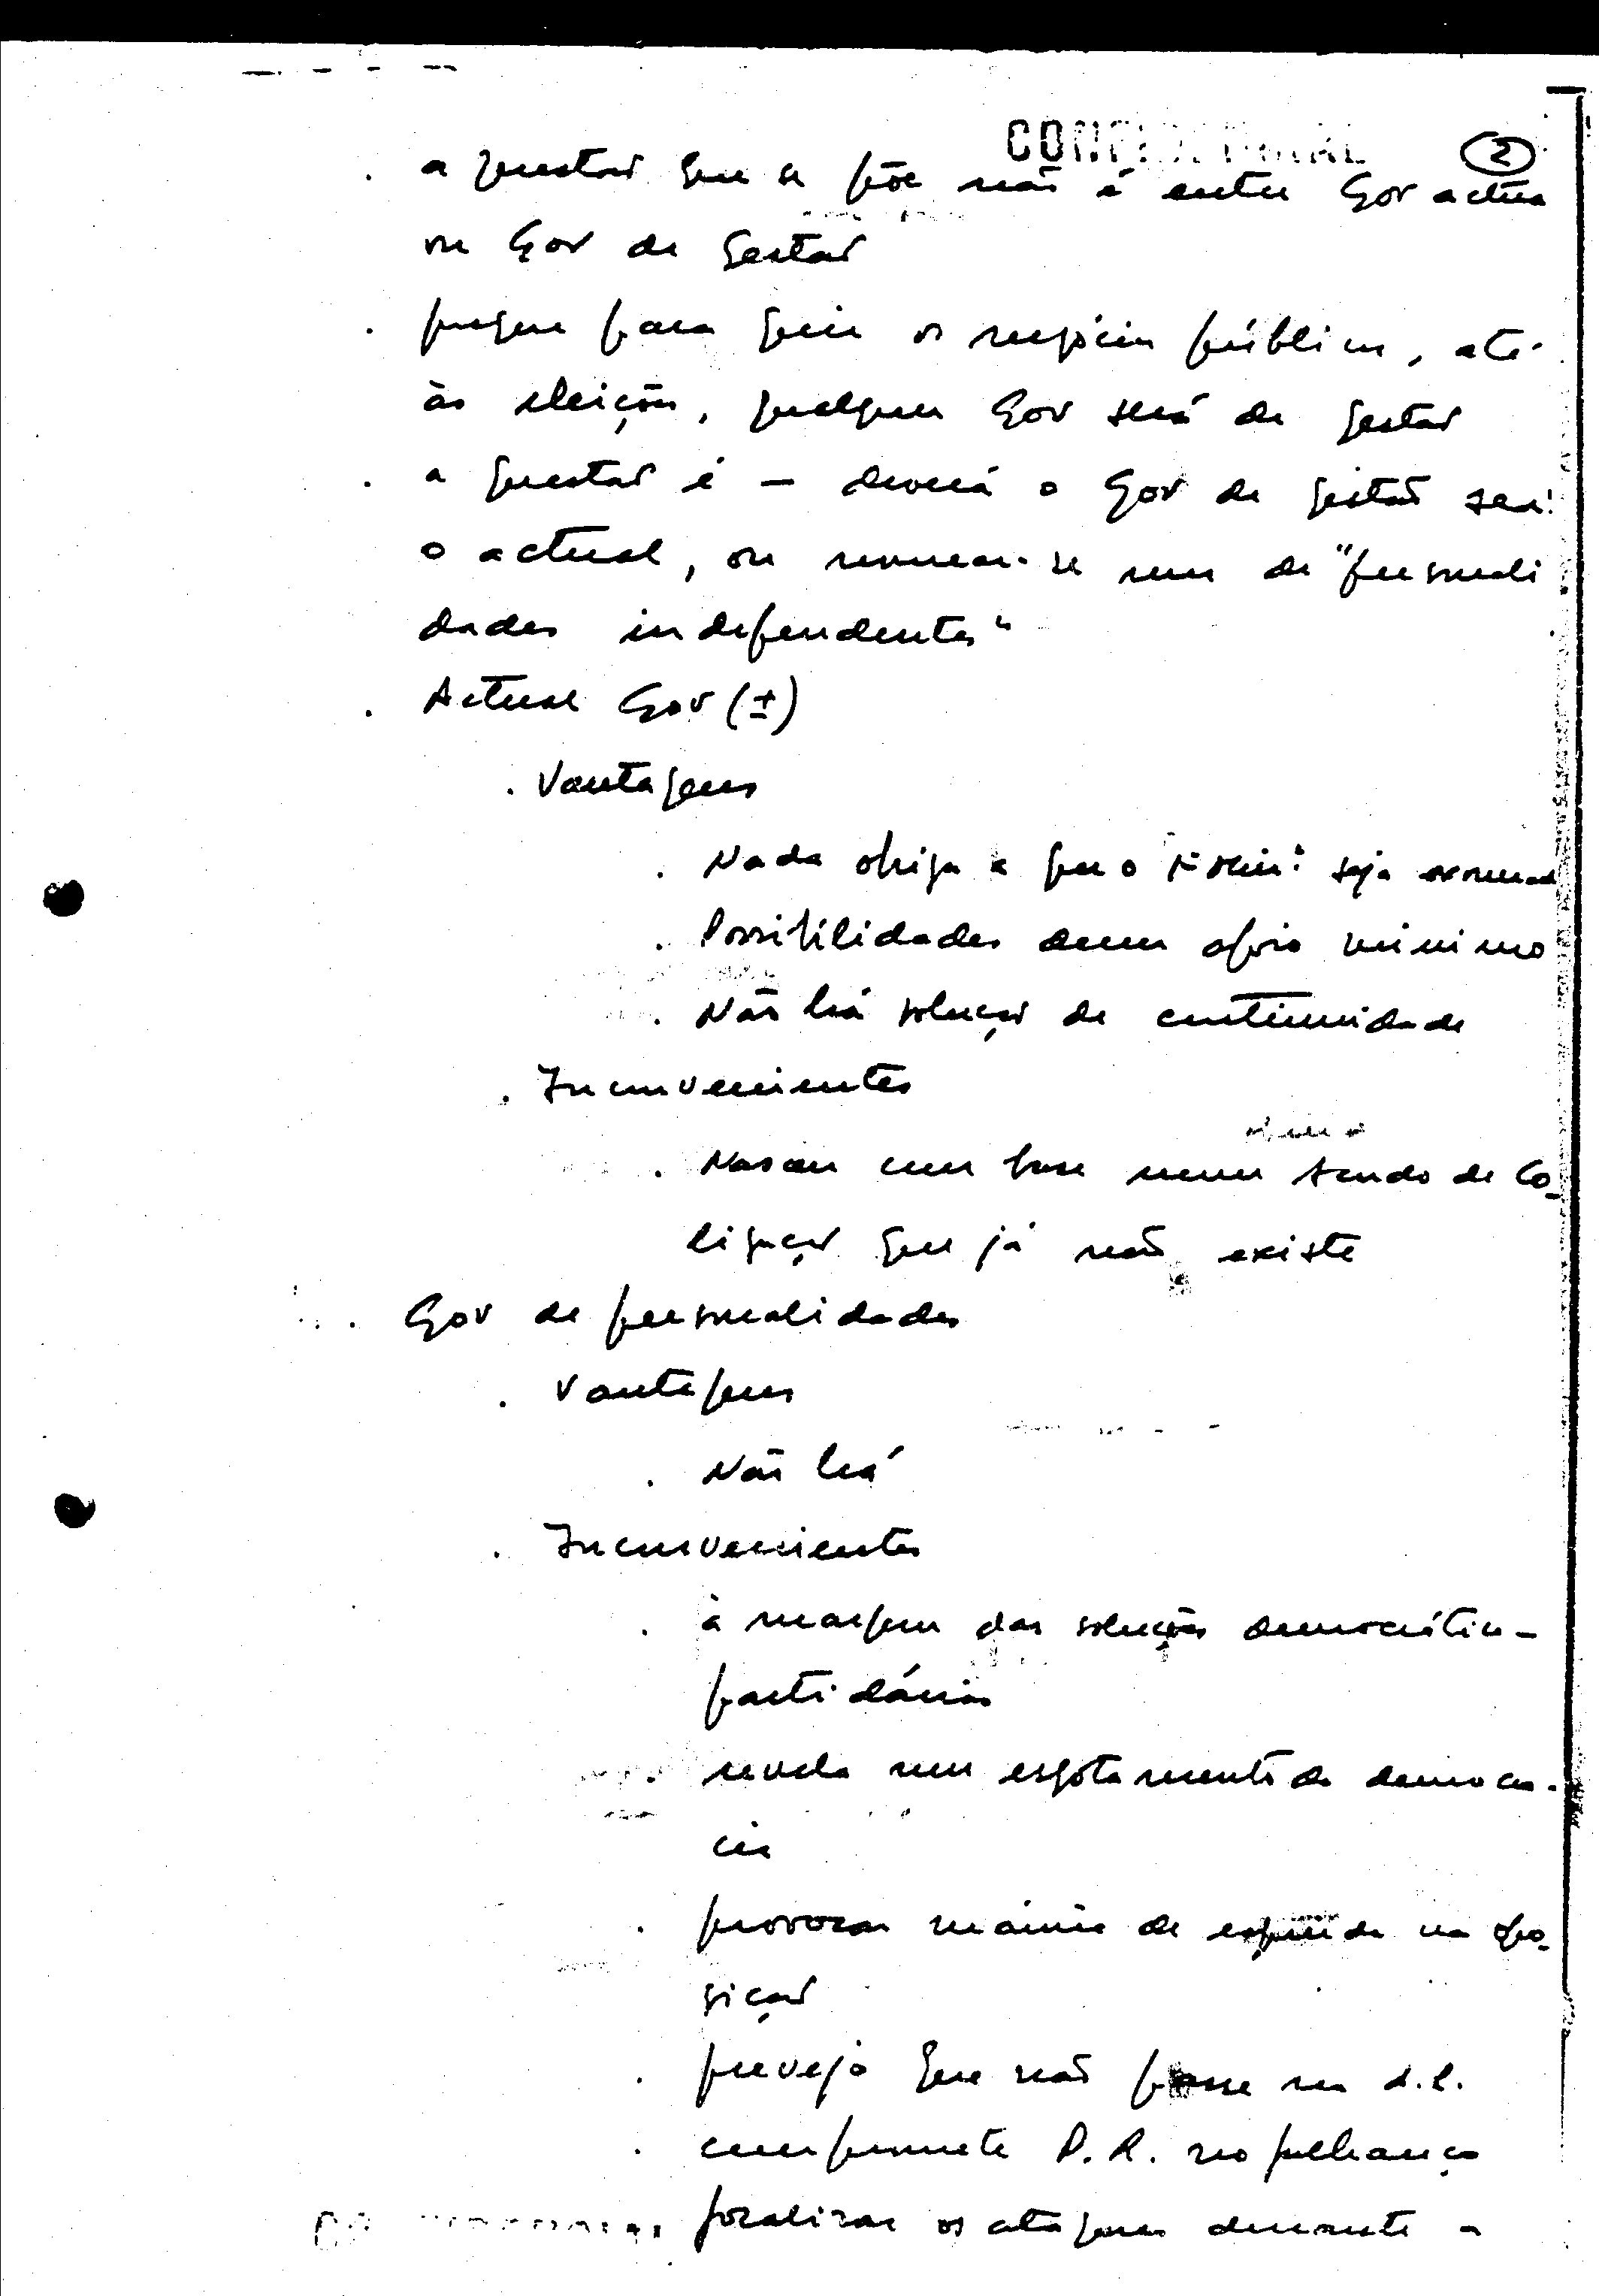 CONFIDENCIAL
2
. a questão que se põe não é entre Gov actua
ou Gov de gestão
. porque para gerir os negócios públicos, até
às eleições, qualquer Gov será de gestão
. a questão é — deverá o Gov de gestão ser
o actual, ou nomear-se um de "personali
dades independentes"
. Actual Gov (±)
. Vantagens
. Nada obriga a que o 1º Min: seja
. Possibilidades dum apoio mínimo
. Não há solução de continuidade
. Inconvenientes
. Nasceu com base num acordo de co-
ligação que já não existe
. Gov de personalidades
. Vantagens
. Não há
. Inconvenientes
. à margem das soluções democrático-
partidárias
. revela um esgotamento da democra-
cia
. provocar maioria de esquerda na opo-
sição
. prevejo que não passe na A.R.
. compromete P.R. no
focalizar os ataques durante a